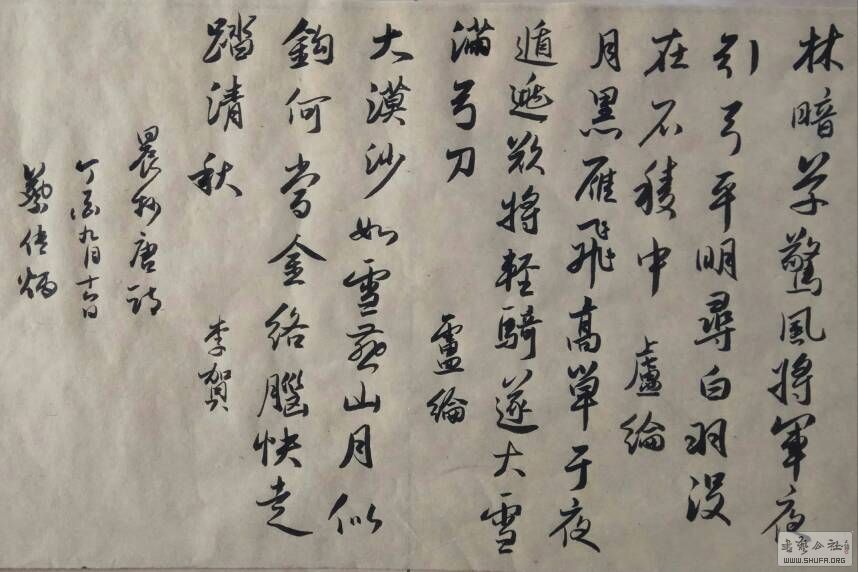 林暗草驚風將軍夜
引弓平明尋白羽没
在石稜中 盧綸
月黑雁飛高單于夜
遁逃欲將輕騎逐大雪
滿弓刀 盧綸
大漠沙如雪燕山月似
鈎何當金絡腦快走
踏清秋 李賀
晨抄唐詩
丁酉九月十六日
蔡佳炳
WWW.SHUFA.ORG